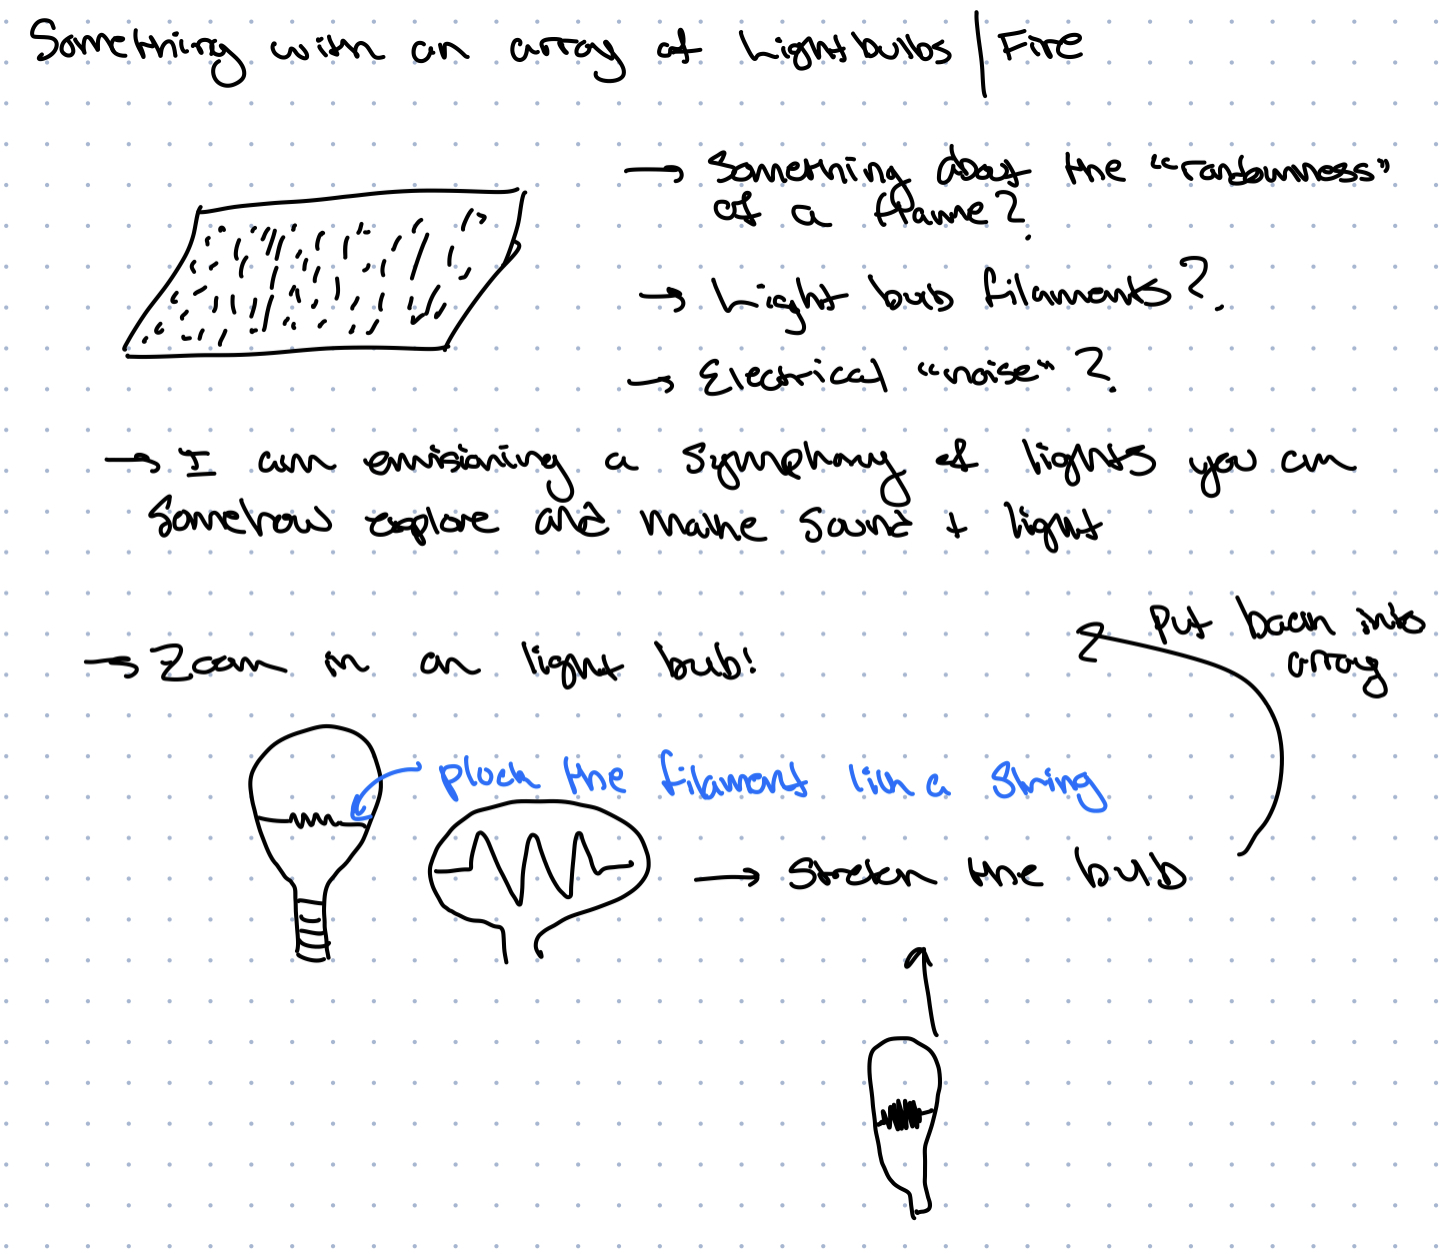 Something with an array of Lightbulbs | Fire
→ Something about the "randomness"
of a flame?
→ Light bub filaments?
→ Electrical "noise"?
→ I am envisioning a symphony of lights you can
somehow explore and make sound + light
→ Zoom in on light bub!
Put back into
array
pluck the filament like a string
→ stretch the bulb